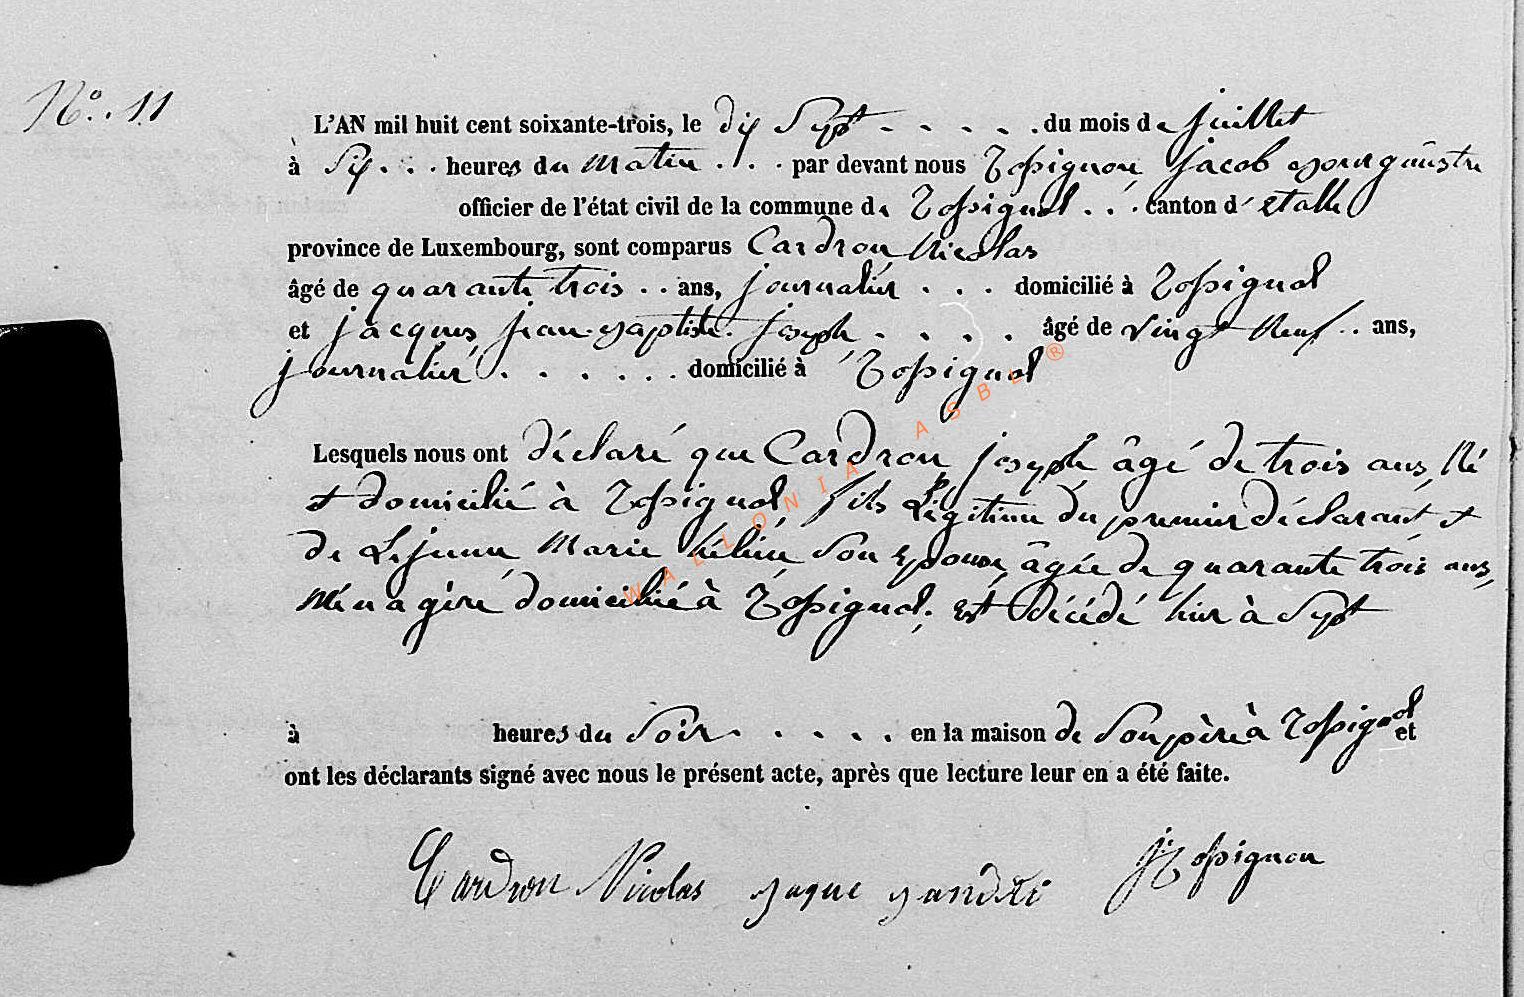 N°. 11
L'AN mil huit cent soixante-trois, le dix Sept . . . . . du mois de juillet
à Six . . . heures du matin . . . par devant nous Rossignon, Jacob Bourgumestre
officier de l'état civil de la commune de Rossignol . . . canton d'Etalle
province de Luxembourg, sont comparus Cardron Nicolas
âgé de quarante trois . . ans, journalier . . . domicilié à Rossignol
et jacques, jean-Baptiste joseph . . . . âgé de Vingt Neuf . . ans,
journalier . . . . . . domicilié à Rossignol
Lesquels nous ont déclaré que Cardron joseph âgé de trois ans, Né
et domicilié à Rossignol, fils Légitime du premier déclarant et
de Lejeune Marie hélène Son Epouse, âgée de quarante trois ans,
Ménagère domiciliée à Rossignol, est décédé hier à Sept
à heures du Soir . . . . . en la maison de Son père à Rossignol et
ont les déclarants signé avec nous le présent acte, après que lecture leur en a été faite.
Cardron Nicolas jaque J Rossignon
WALLONIA ASBL ®